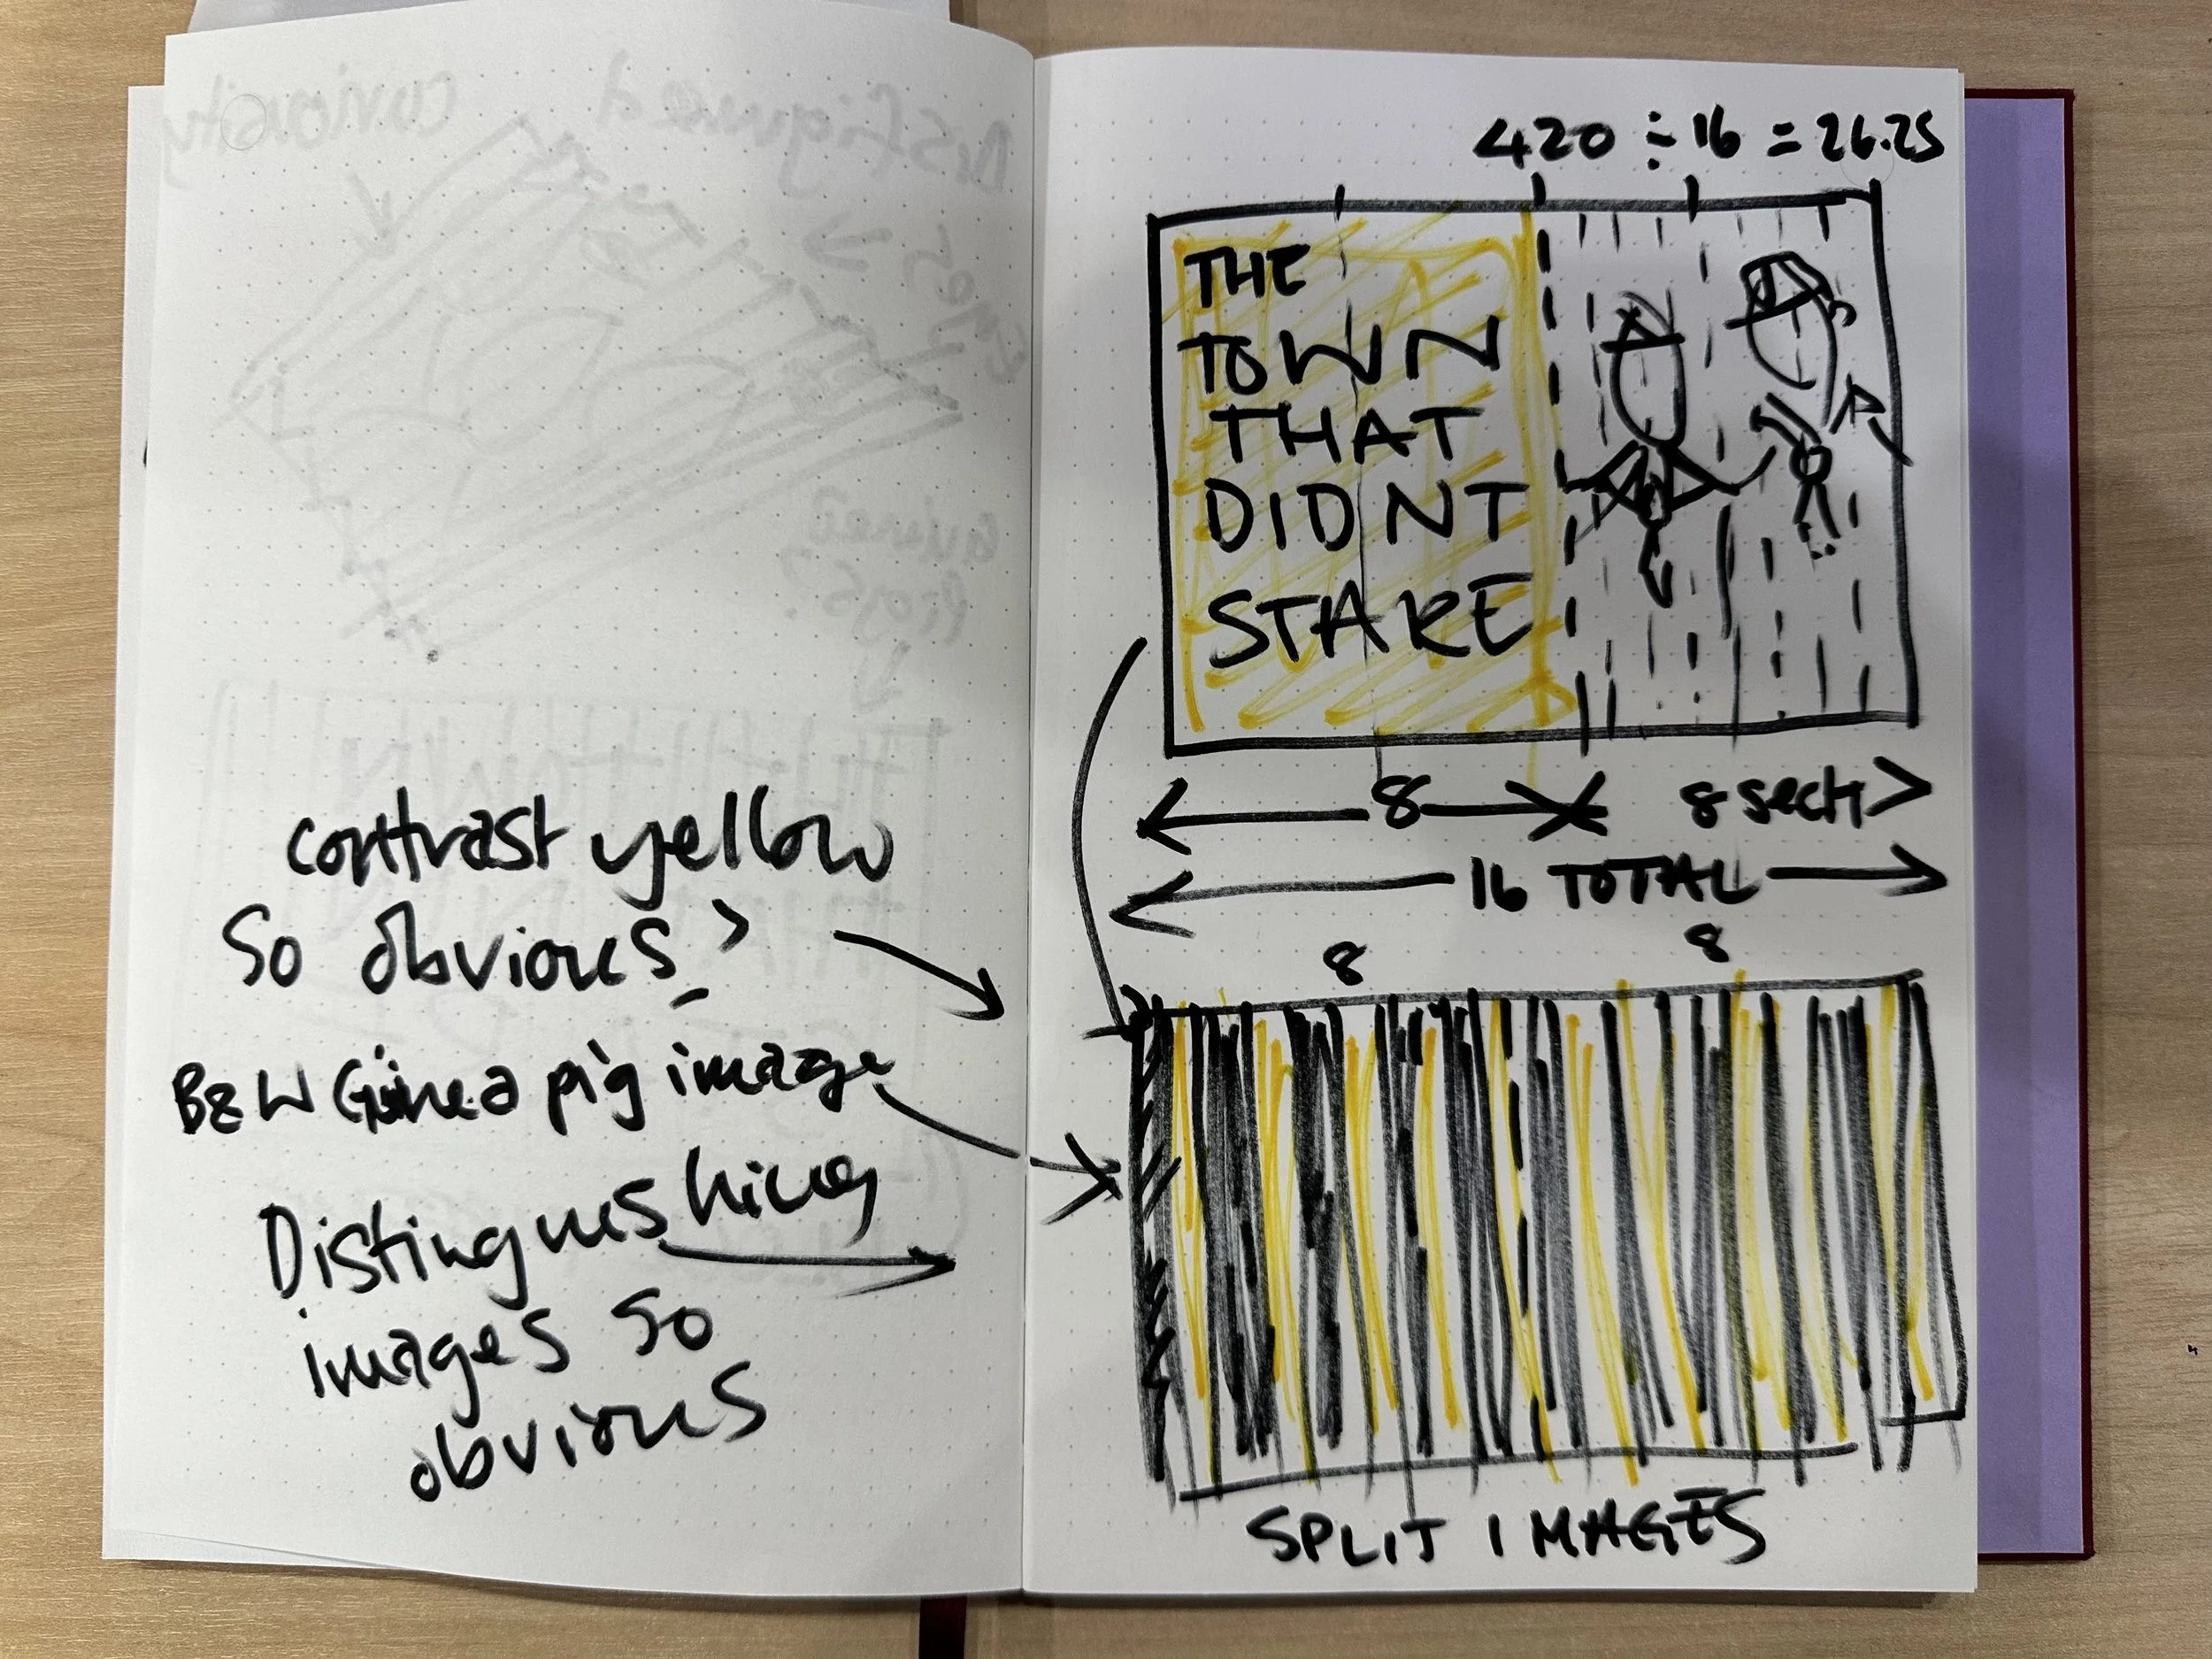 contrast yellow
So obvious?
B&W Guinea pig image
Distinguishing
images so
obvious
420 ÷ 16 = 26.25
THE
TOWN
THAT
DIDNT
STARE
8 8 sect
16 TOTAL
8 8
SPLIT IMAGES